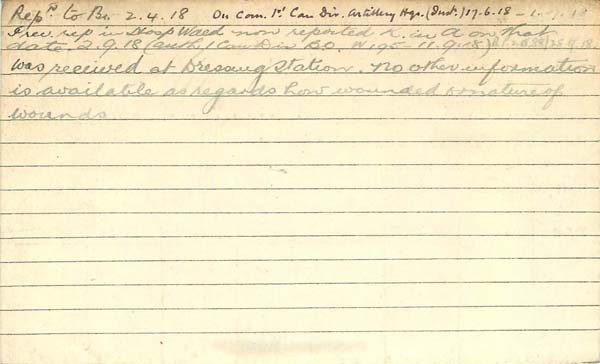 Rep'd to Br. 2.4.18 On Com. 1st Can Div. Artillery Hqs. (Inst.) 17.6.18 –
Prev. rep in Hosp Waed now reported K. in A on that
date. 2.9.18 (auth, 1 Can Div BO. W195 11.9.18)
was received at Dressing Station. No other information
is available as regards how wounded or nature of
wounds